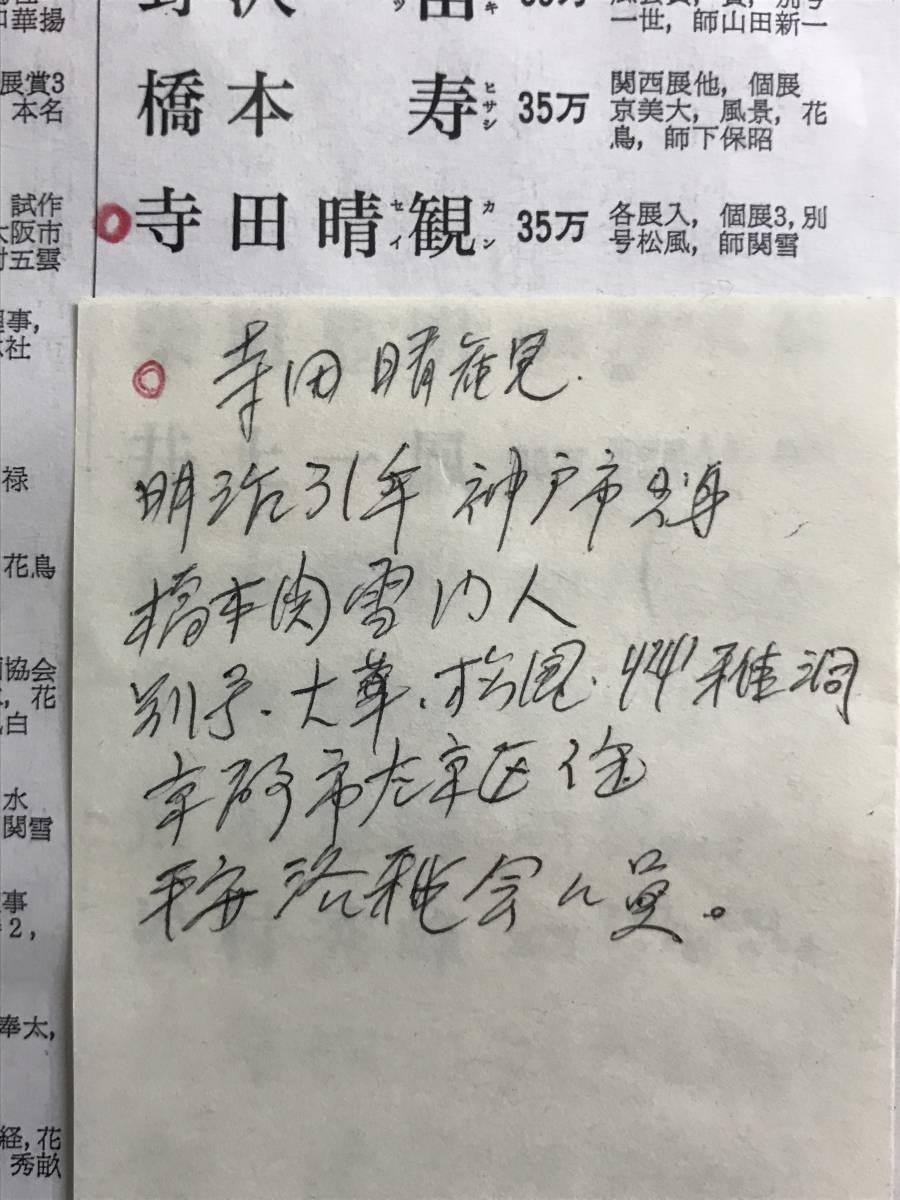 一世, 師山田新一
橋本 寿 ヒサシ 35万 関西展他, 個展
京美大, 風景, 花
鳥, 師下保昭
寺田晴観 セイカン 35万 各展入, 個展3, 別
号松風, 師関雪
和華揚
展賞3
本名
試作
大阪市
村五雲
理事,
禄
花鳥
協会
花
白
水
関雪
事
2,
奉太,
経, 花
秀畝
寺田晴観.
明治31年 神戸市出身
橋本関雪門人
別号. 大華. 松風. 雅洞
京都市左京区住
平安 会 員。